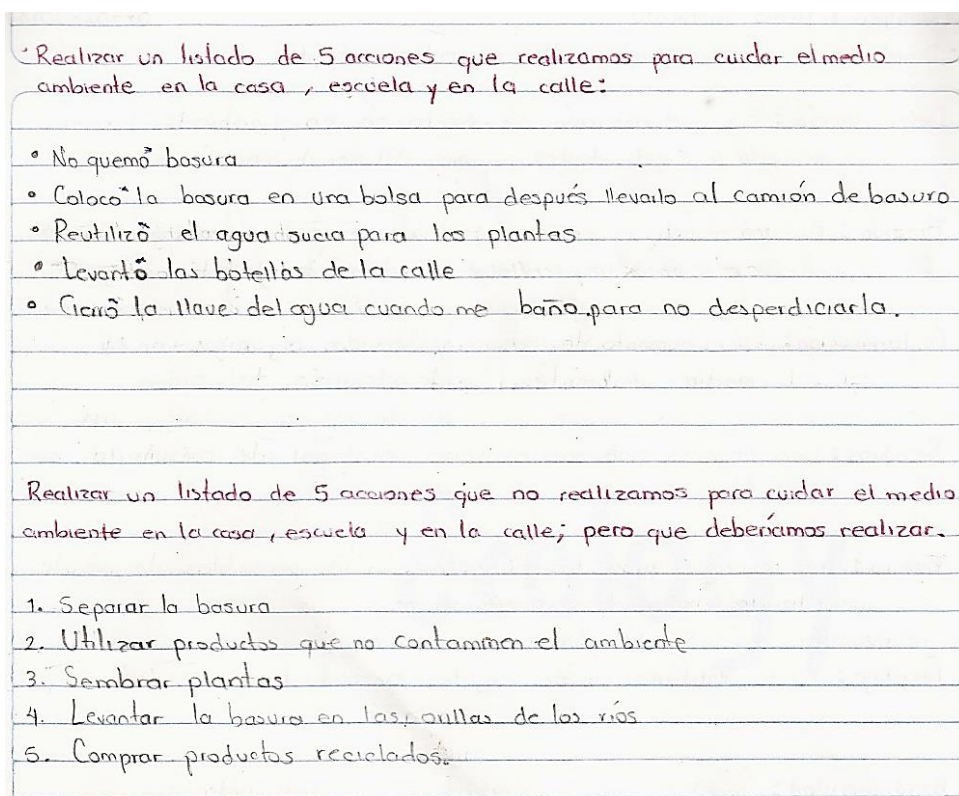 Realizar un listado de 5 acciones que realizamos para cuidar el medio
ambiente en la casa, escuela y en la calle:
• No quemó basura
• Colocó la basura en una bolsa para después llevarlo al camión de basura
• Reutilizó el agua sucia para las plantas
• Levantó las botellas de la calle
• Cierró la llave del agua cuando me baño para no desperdiciarla.
Realizar un listado de 5 acciones que no realizamos para cuidar el medio
ambiente en la casa, escuela y en la calle; pero que deberíamos realizar.
1. Separar la basura
2. Utilizar productos que no contaminen el ambiente
3. Sembrar plantas
4. Levantar la basura en las oullas de los ríos
5. Comprar productos reciclados.